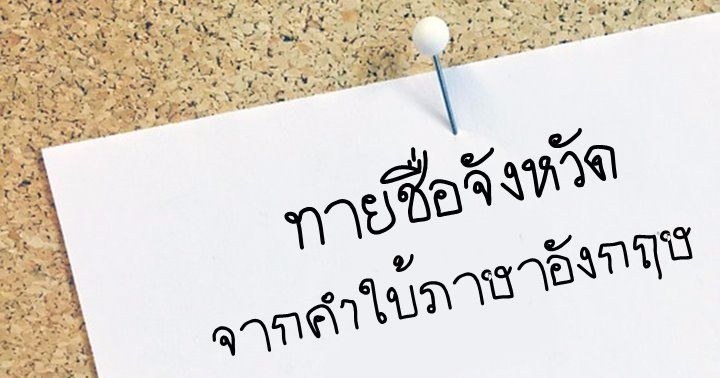 ทายชื่อจังหวัด
จากคำใบ้ภาษาอังกฤษ